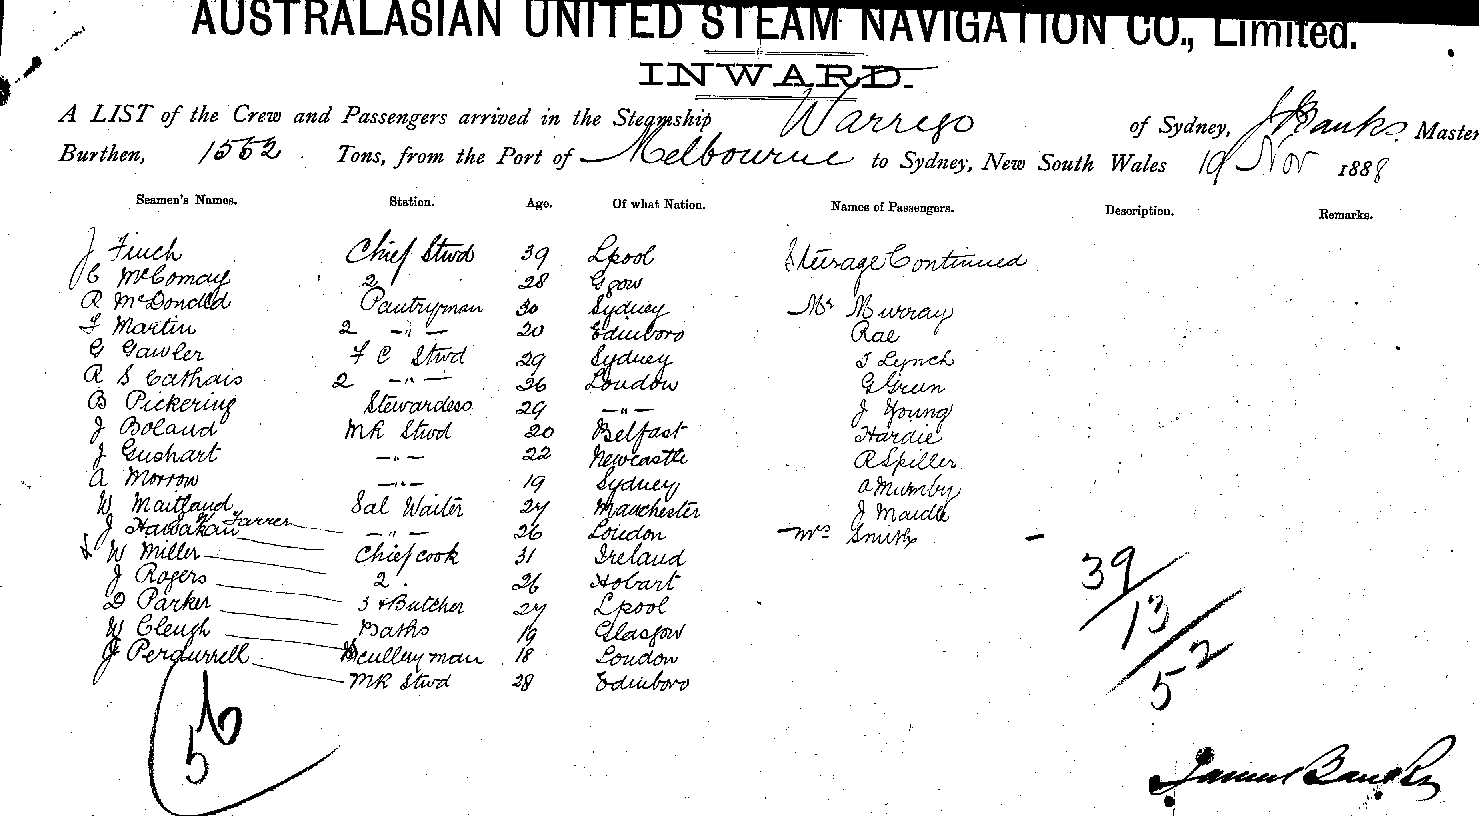 AUSTRALASIAN UNITED STEAM NAVIGATION CO., Limited.
INWARD.
A LIST of the Crew and Passengers arrived in the Steamship Warrego of Sydney, J Banks Master
Burthen, 1552 Tons, from the Port of Melbourne to Sydney, New South Wales 19 Nov 1888
Seamen's Names. Station. Age. Of what Nation. Names of Passengers. Description. Remarks.
J Finch Chief Stwd 39 Lpool Steerage Continued
C McComay 2 28 Ggow
R McDonald Pantryman 30 Sydney Mr Murray
F Martin 2 -"- 20 Edinboro Rae
G Gawler F C Stwd 29 Sydney T Lynch
R S Cathais 2 -"- 26 London G Green
B Pickering Stewardess 29 -"- J Young
J Boland MR Stwd 20 Belfast Hardie
J Gushart -"- 22 Newcastle R Spiller
A Morrow -"- 19 Sydney A Mumby
W Maitland Sal Waiter 27 Manchester J Maidle
J Farrer -"- 26 London Mrs Smith
W Miller Chief cook 31 Ireland
J Rogers 2 26 Hobart
D Parker 3 & Butcher 27 Lpool
W Cleugh Baths 19 Glasgow
J Perdurrell Sculleryman 18 London
MR Stwd 28 Edinboro
39
13
52
56
James Banks